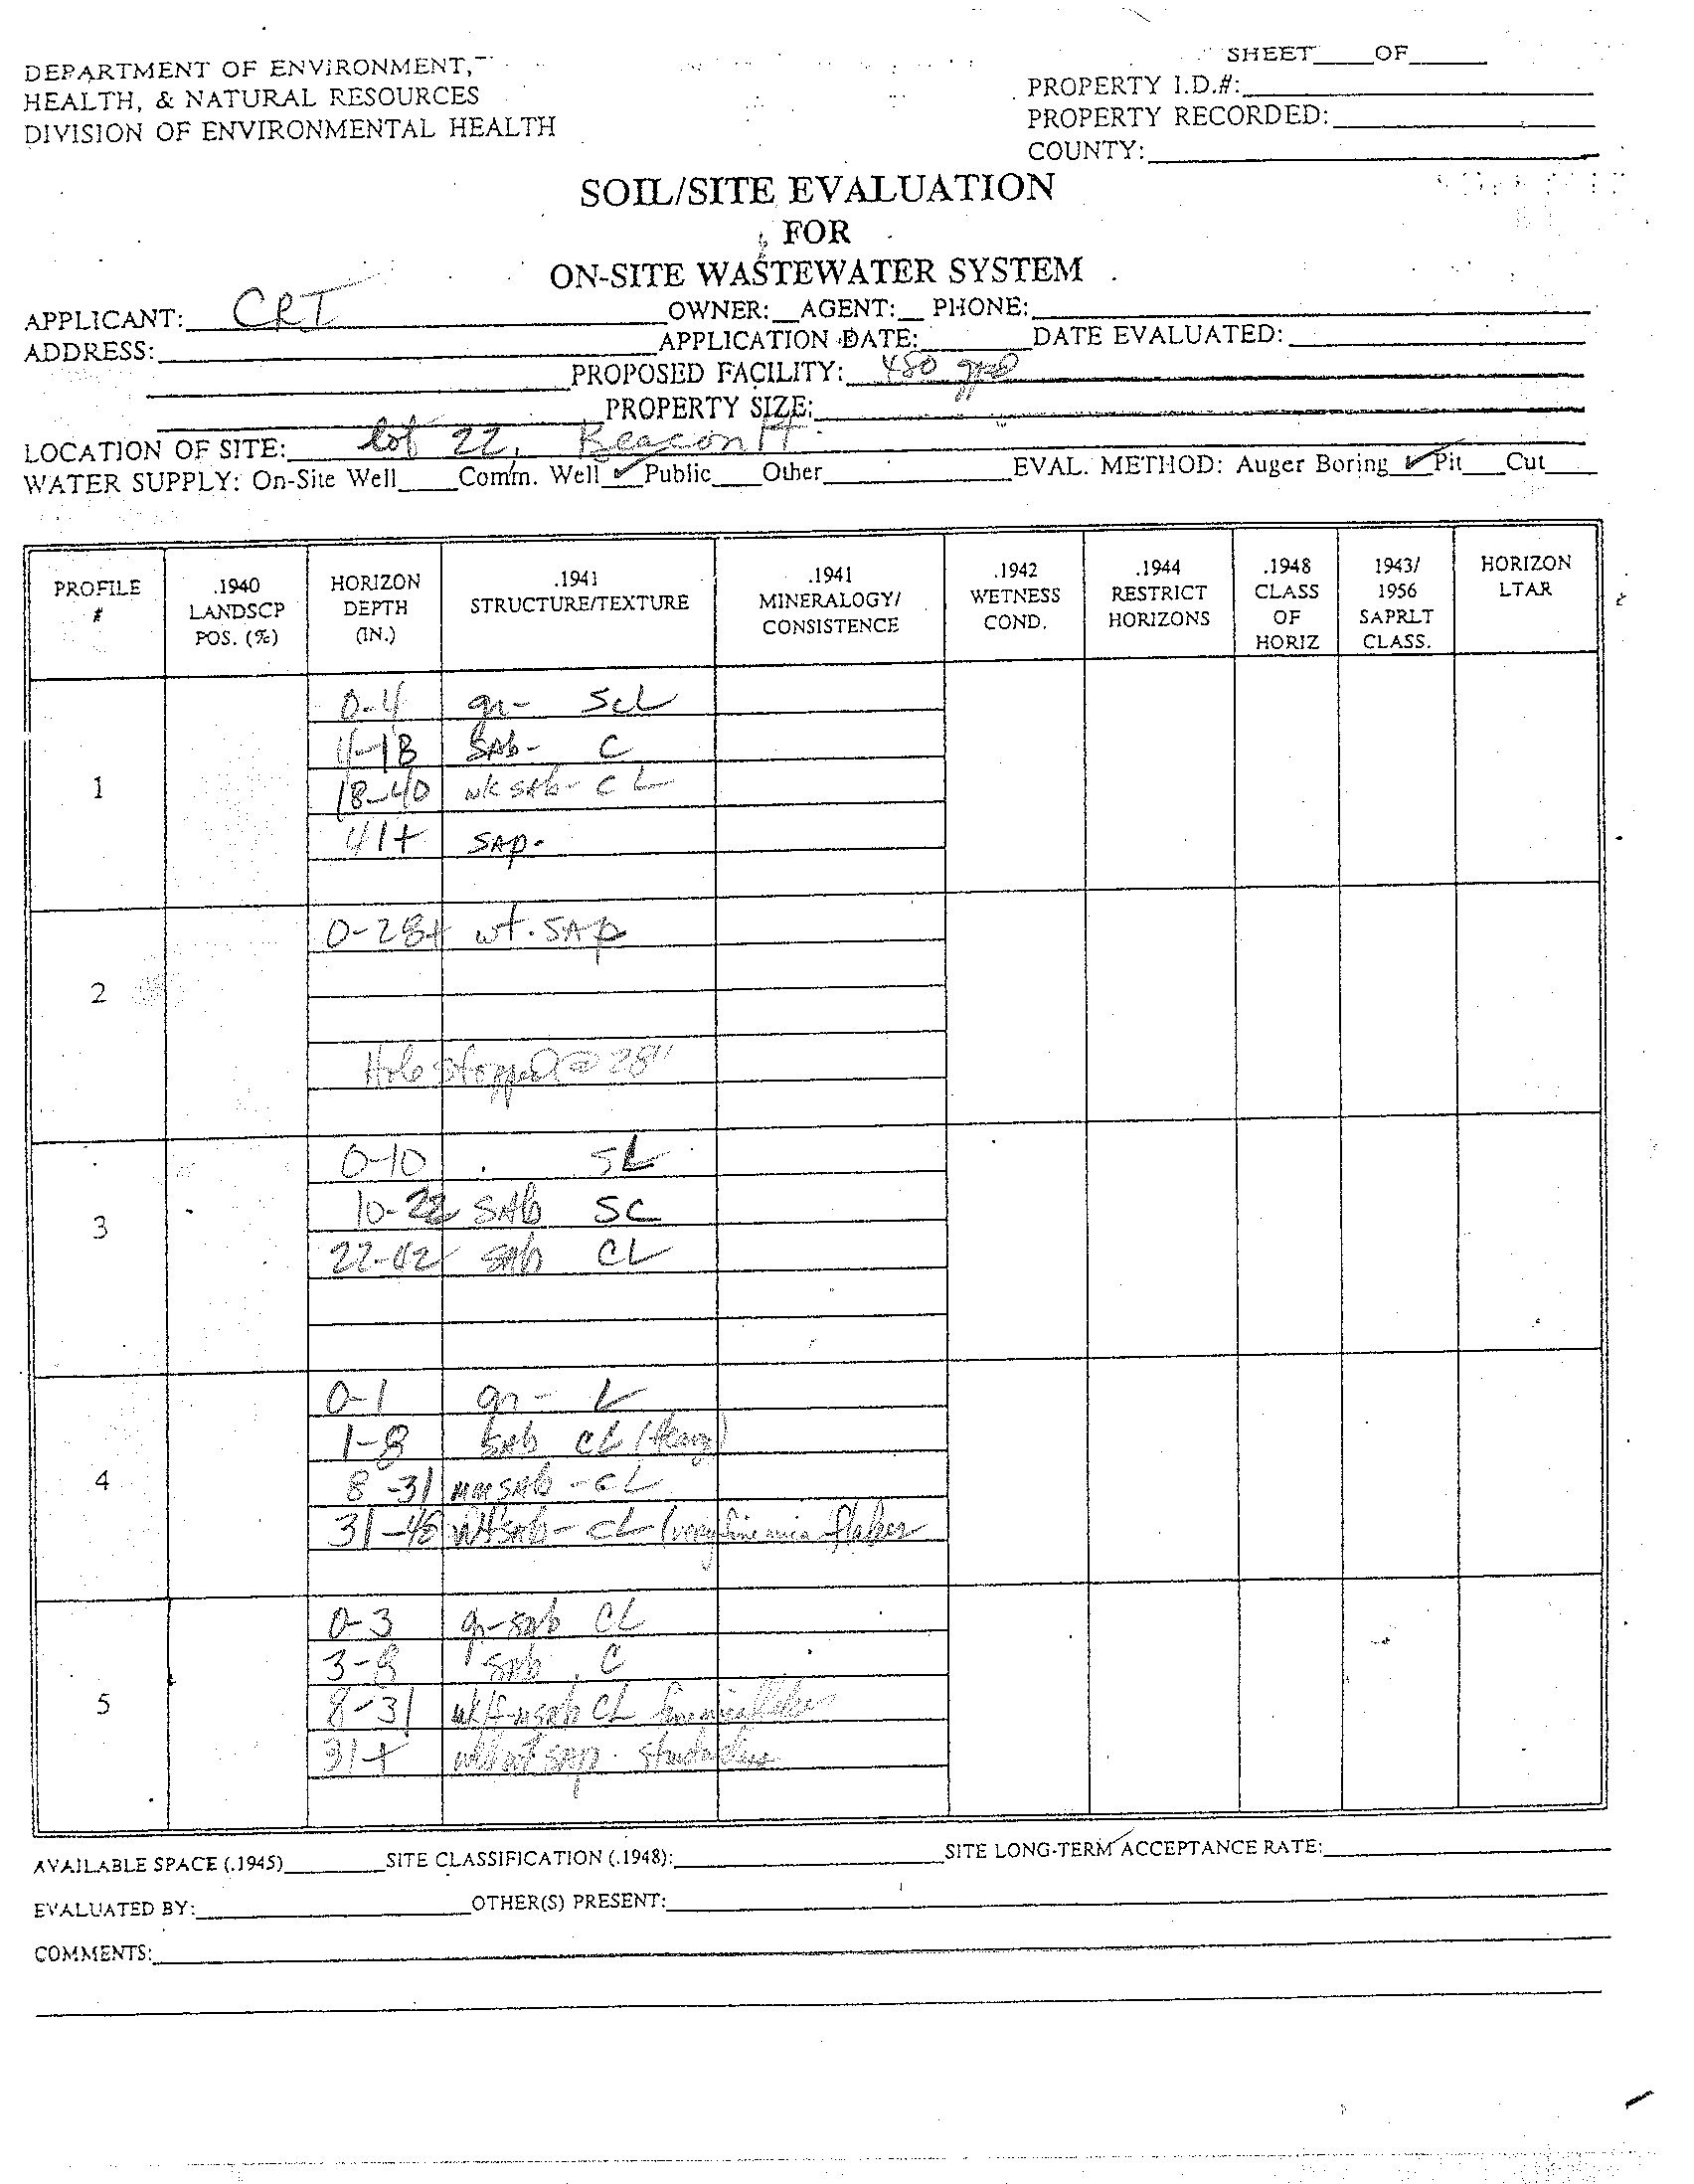 SHEET____OF____
DEPARTMENT OF ENVIRONMENT,
HEALTH, & NATURAL RESOURCES
DIVISION OF ENVIRONMENTAL HEALTH
PROPERTY I.D.#:
PROPERTY RECORDED:
COUNTY:
SOIL/SITE EVALUATION
FOR
ON-SITE WASTEWATER SYSTEM
APPLICANT: CRT OWNER:__AGENT:__ PHONE:
ADDRESS: APPLICATION DATE: DATE EVALUATED:
PROPOSED FACILITY: 480 gpd
PROPERTY SIZE:
LOCATION OF SITE: lot 22, Beacon H
WATER SUPPLY: On-Site Well____Comm. Well ✓ Public____Other EVAL. METHOD: Auger Boring ✓ Pit___Cut
PROFILE # .1940 LANDSCP POS. (%) HORIZON DEPTH (IN.) .1941 STRUCTURE/TEXTURE .1941 MINERALOGY/ CONSISTENCE .1942 WETNESS COND. .1944 RESTRICT HORIZONS .1948 CLASS OF HORIZ 1943/ 1956 SAPRLT CLASS. HORIZON LTAR
1
0-4 gr- SCL
4-18 SAb- C
18-40 wk SAb- CL
41+ SAp.
2
0-28+ wt. SAp
Hole stopped @ 28"
3
0-10 SL
10-22 SAb SC
22-42 SAb CL
4
0-1 gr- L
1-8 SAb CL (Heavy)
8-31 SAb -CL
31-48 SAb- CL (very fine mica flakes
5
0-3 gr-SAb CL
3-8 SAb C
8-31 SAb CL fine mica flakes
31+ wt SAp.
AVAILABLE SPACE (.1945) SITE CLASSIFICATION (.1948): SITE LONG-TERM ACCEPTANCE RATE:
EVALUATED BY: OTHER(S) PRESENT:
COMMENTS: